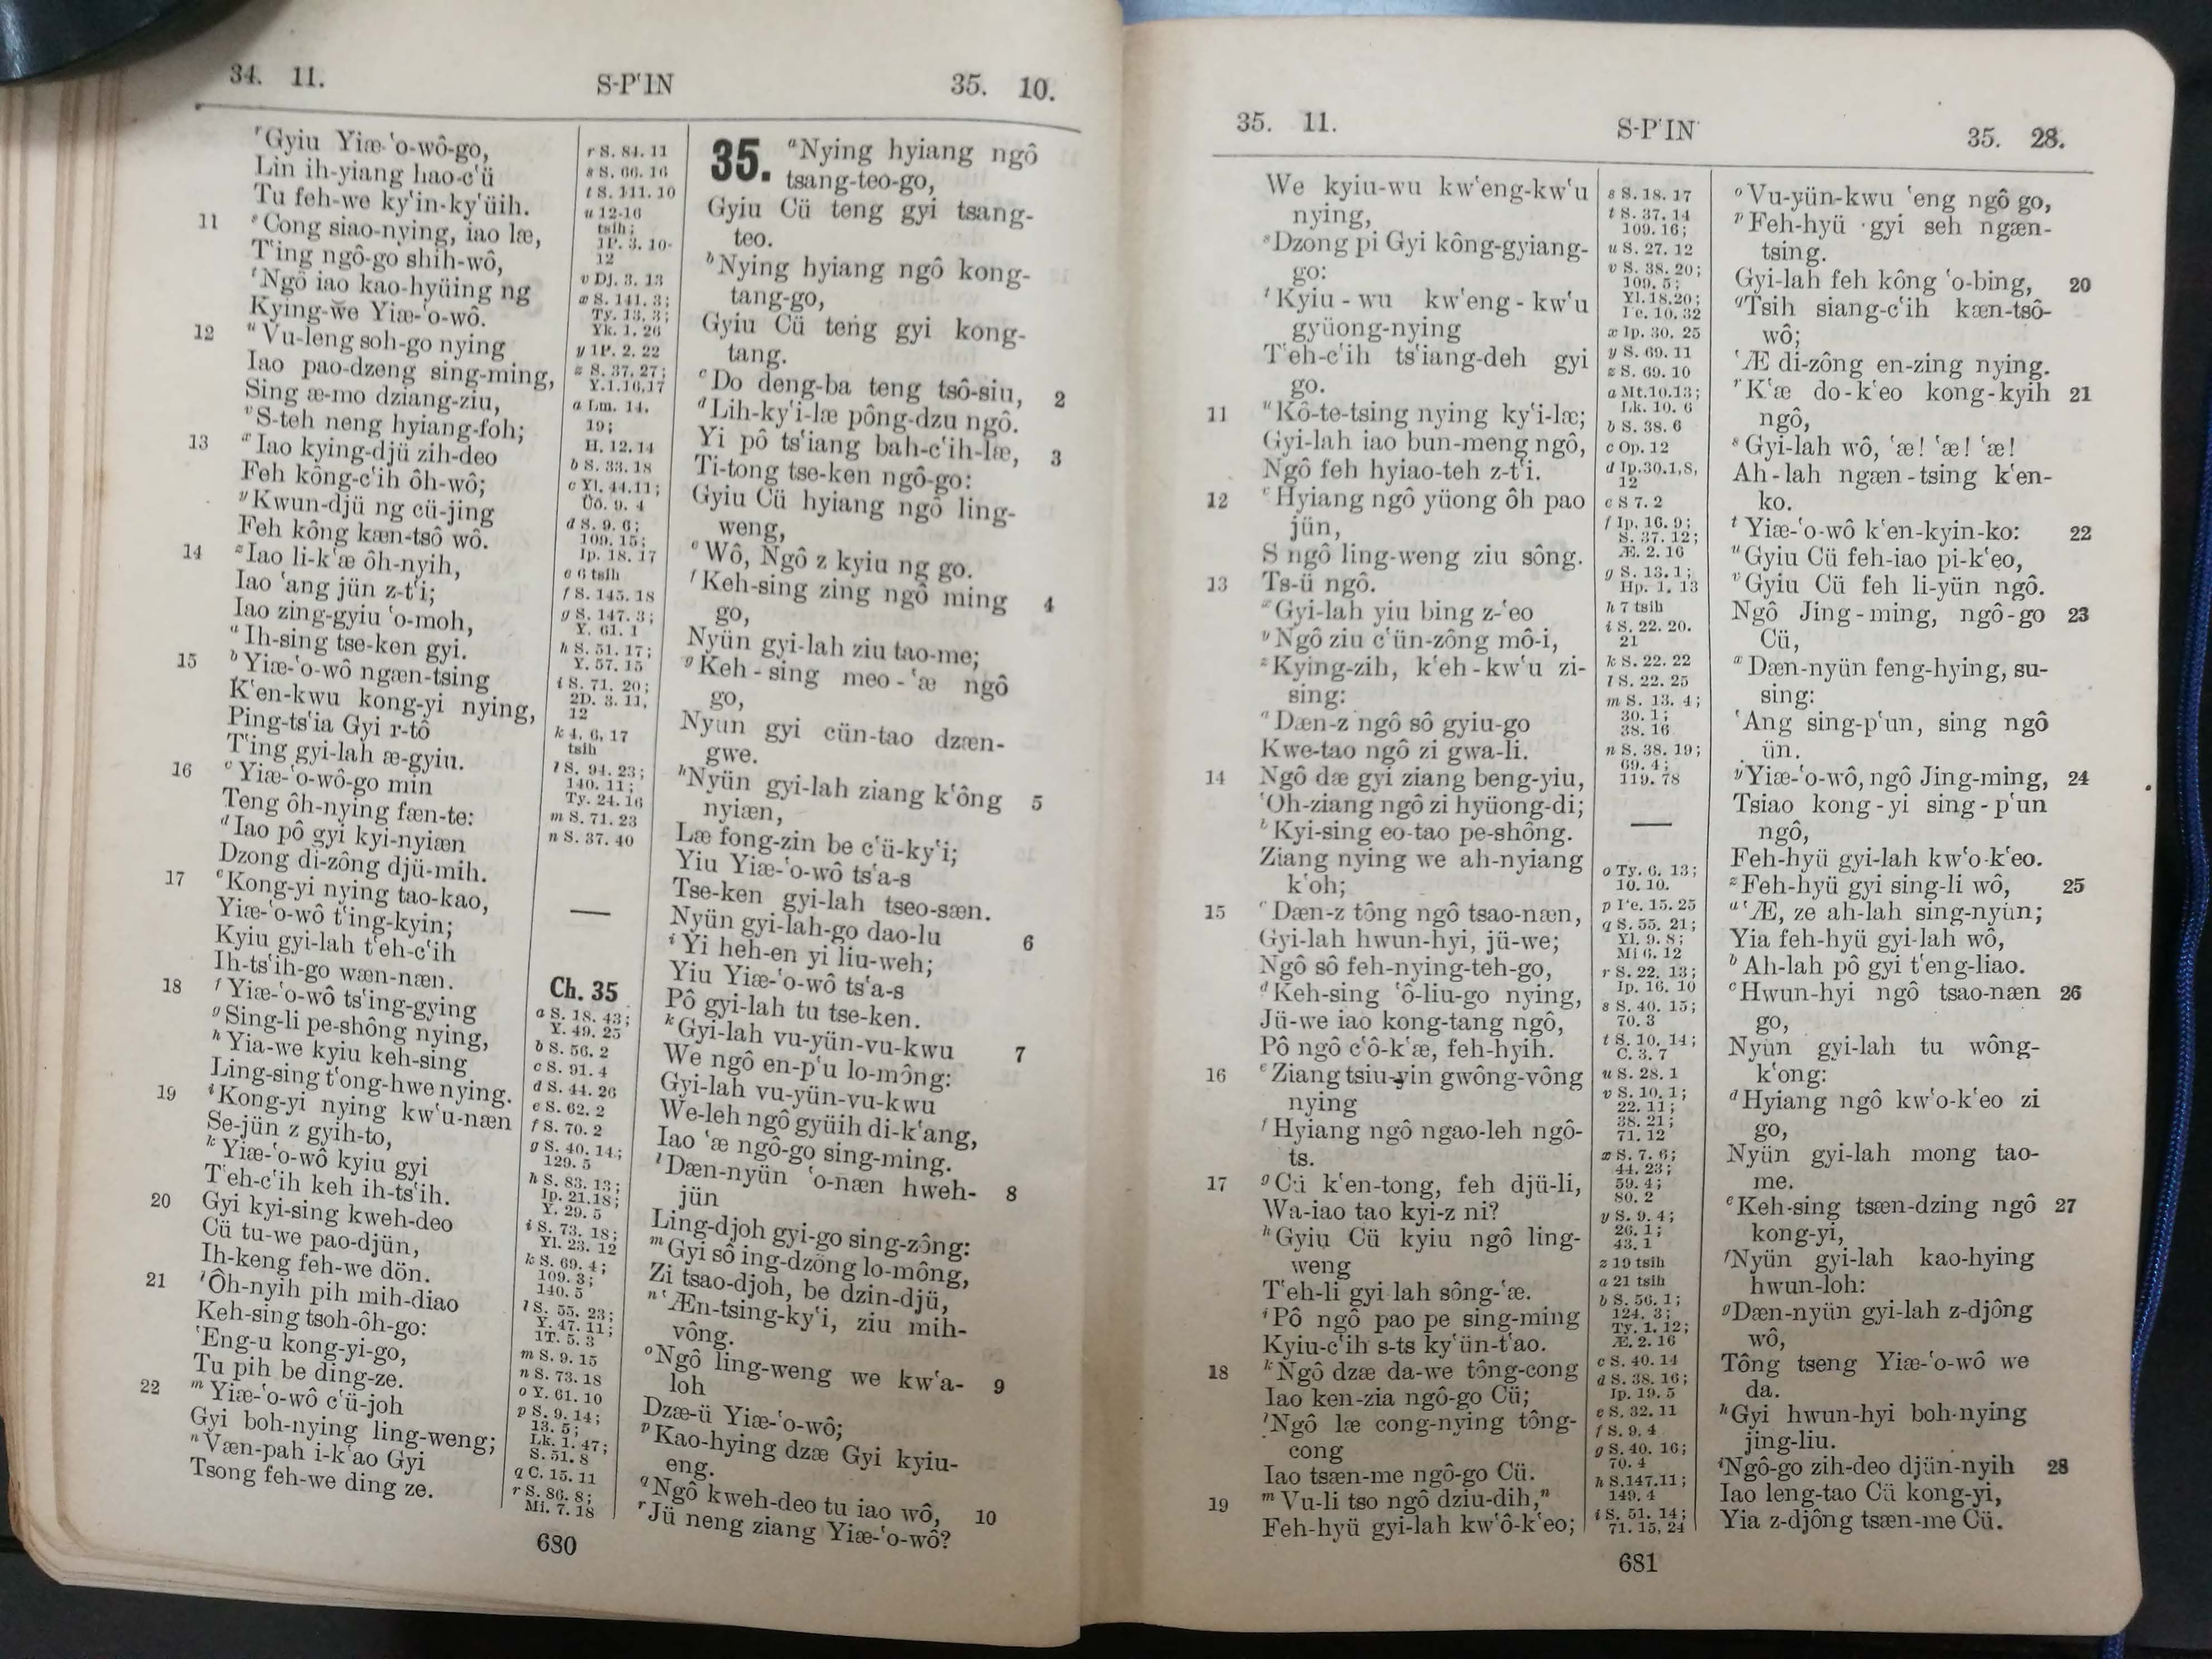 34. 11. S-P'IN 35. 10.
ʳGyiu Yiæ-'o-wô-go,
Lin ih-yiang hao-c'ü
Tu feh-we ky'in-ky'üih.
11 ˢCong siao-nying, iao læ,
T'ing ngô-go shih-wô,
ᵗNgô iao kao-hyüing ng
Kying-we Yiæ-'o-wô.
12 ᵘVu-leng soh-go nying
Iao pao-dzeng sing-ming,
Sing æ-mo dziang-ziu,
ᵛS-teh neng hyiang-foh;
13 ˣIao kying-djü zih-deo
Feh kông-c'ih ôh-wô;
ʸKwun-djü ng cü-jing
Feh kông kæn-tsô wô.
14 ᶻIao li-k'æ ôh-nyih,
Iao 'ang jün z-t'i;
Iao zing-gyiu 'o-moh,
ᵃIh-sing tse-ken gyi.
15 ᵇYiæ-'o-wô ngæn-tsing
K'en-kwu kong-yi nying,
Ping-ts'ia Gyi r-tô
T'ing gyi-lah æ-gyiu.
16 ᶜYiæ-'o-wô-go min
Teng ôh-nying fæn-te:
ᵈIao pô gyi kyi-nyiæn
Dzong di-zông djü-mih.
17 ᵉKong-yi nying tao-kao,
Yiæ-'o-wô t'ing-kyin;
Kyiu gyi-lah t'eh-c'ih
Ih-ts'ih-go wæn-næn.
18 ᶠYiæ-'o-wô ts'ing-gying
ᵍSing-li pe-shông nying,
ʰYia-we kyiu keh-sing
Ling-sing t'ong-hwe nying.
19 ⁱKong-yi nying kw'u-næn
Se-jün z gyih-to,
ᵏYiæ-'o-wô kyiu gyi
T'eh-c'ih keh ih-ts'ih.
20 Gyi kyi-sing kweh-deo
Cü tu-we pao-djün,
Ih-keng feh-we dön.
21 ˡÔh-nyih pih mih-diao
Keh-sing tsoh-ôh-go:
'Eng-u kong-yi-go,
Tu pih be ding-ze.
22 ᵐYiæ-'o-wô c'ü-joh
Gyi boh-nying ling-weng;
ⁿVæn-pah i-k'ao Gyi
Tsong feh-we ding ze.
r S. 84. 11
s S. 66. 16
t S. 111. 10
u 12-16
tsih;
1P. 3. 10-
12
v Dj. 3. 13
x S. 141. 3;
Ty. 13. 3;
Yk. 1. 26
y 1P. 2. 22
z S. 37. 27;
Y.1.16,17
a Lm. 14.
19;
H. 12. 14
b S. 33. 18
c Yl. 44.11;
Üô. 9. 4
d S. 9. 6;
109. 15;
Ip. 18. 17
e 6 tsih
f S. 145. 18
g S. 147. 3;
Y. 61. 1
h S. 51. 17;
Y. 57. 15
i S. 71. 20;
2D. 3. 11,
12
k 4, 6, 17
tsih
l S. 94. 23;
140. 11;
Ty. 24. 16
m S. 71. 23
n S. 37. 40
Ch. 35
a S. 18. 43;
Y. 49. 25
b S. 56. 2
c S. 91. 4
d S. 44. 26
e S. 62. 2
f S. 70. 2
g S. 40. 14;
129. 5
h S. 83. 13;
Ip. 21.18;
Y. 29. 5
i S. 73. 18;
Yl. 23. 12
k S. 69. 4;
109. 3;
140. 5
l S. 55. 23;
Y. 47. 11;
1T. 5. 3
m S. 9. 15
n S. 73. 18
o Y. 61. 10
p S. 9. 14;
13. 5;
Lk. 1. 47;
S. 51. 8
q C. 15. 11
r S. 86. 8;
Mi. 7. 18
35. ᵃNying hyiang ngô
tsang-teo-go,
Gyiu Cü teng gyi tsang-
teo.
ᵇNying hyiang ngô kong-
tang-go,
Gyiu Cü teng gyi kong-
tang.
ᶜDo deng-ba teng tsô-siu, 2
ᵈLih-ky'i-læ pông-dzu ngô.
Yi pô ts'iang bah-c'ih-læ, 3
Ti-tong tse-ken ngô-go:
Gyiu Cü hyiang ngô ling-
weng,
ᵉWô, Ngô z kyiu ng go.
ᶠKeh-sing zing ngô ming 4
go,
Nyün gyi-lah ziu tao-me;
ᵍKeh-sing meo-'æ ngô
go,
Nyün gyi cün-tao dzæn-
gwe.
ʰNyün gyi-lah ziang k'ông 5
nyiæn,
Læ fong-zin be c'ü-ky'i;
Yiu Yiæ-'o-wô ts'a-s
Tse-ken gyi-lah tseo-sæn.
Nyün gyi-lah-go dao-lu 6
ⁱYi heh-en yi liu-weh;
Yiu Yiæ-'o-wô ts'a-s
Pô gyi-lah tu tse-ken.
ᵏGyi-lah vu-yün-vu-kwu 7
We ngô en-p'u lo-mông:
Gyi-lah vu-yün-vu-kwu
We-leh ngô gyüih di-k'ang,
Iao 'æ ngô-go sing-ming.
ˡDæn-nyün 'o-næn hweh- 8
jün
Ling-djoh gyi-go sing-zông:
ᵐGyi sô ing-dzông lo-mông,
Zi tsao-djoh, be dzin-djü,
ⁿ'Æn-tsing-ky'i, ziu mih-
vông.
ᵒNgô ling-weng we kw'a- 9
loh
Dzæ-ü Yiæ-'o-wô;
ᵖKao-hying dzæ Gyi kyiu-
eng.
qNgô kweh-deo tu iao wô, 10
ʳJü neng ziang Yiæ-'o-wô?
680
35. 11. S-P'IN 35. 28.
We kyiu-wu kw'eng-kw'u
nying,
ˢDzong pi Gyi kông-gyiang-
go:
ᵗKyiu-wu kw'eng-kw'u
gyüong-nying
T'eh-c'ih ts'iang-deh gyi
go.
11 ᵘKô-te-tsing nying ky'i-læ;
Gyi-lah iao bun-meng ngô,
Ngô feh hyiao-teh z-t'i.
12 ᵛHyiang ngô yüong ôh pao
jün,
S ngô ling-weng ziu sông.
13 Ts-ü ngô.
ˣGyi-lah yiu bing z-'eo
ʸNgô ziu c'ün-zông mô-i,
ᶻKying-zih, k'eh-kw'u zi-
sing:
ᵃDæn-z ngô sô gyiu-go
Kwe-tao ngô zi gwa-li.
14 Ngô dæ gyi ziang beng-yiu,
'Oh-ziang ngô zi hyüong-di;
ᵇKyi-sing eo-tao pe-shông.
Ziang nying we ah-nyiang
k'oh;
15 ᶜDæn-z tông ngô tsao-næn,
Gyi-lah hwun-hyi, jü-we;
Ngô sô feh-nying-teh-go,
ᵈKeh-sing 'ô-liu-go nying,
Jü-we iao kong-tang ngô,
Pô ngô c'ô-k'æ, feh-hyih.
16 ᵉZiang tsiu-yin gwông-vông
nying
ᶠHyiang ngô ngao-leh ngô-
ts.
17 ᵍCü k'en-tong, feh djü-li,
Wa-iao tao kyi-z ni?
ʰGyiu Cü kyiu ngô ling-
weng
T'eh-li gyi lah sông-'æ.
ⁱPô ngô pao pe sing-ming
Kyiu-c'ih s-ts ky'ün-t'ao.
18 ᵏNgô dzæ da-we tông-cong
Iao ken-zia ngô-go Cü;
ˡNgô læ cong-nying tông-
cong
Iao tsæn-me ngô-go Cü.
19 ᵐVu-li tso ngô dziu-dih,ⁿ
Feh-hyü gyi-lah kw'ô-k'eo;
s S. 18. 17
t S. 37. 14
109. 16;
u S. 27. 12
v S. 38. 20;
109. 5;
Yl. 18.20;
Ye. 10. 32
x Ip. 30. 25
y S. 69. 11
z S. 69. 10
a Mt.10.13;
Lk. 10. 6
b S. 38. 6
c Op. 12
d Ip.30.1,8,
12
e S 7. 2
f Ip. 16. 9;
S. 37. 12;
Æ. 2. 16
g S. 13. 1;
Hp. 1. 13
h 7 tsih
i S. 22. 20.
21
k S. 22. 22
l S. 22. 25
m S. 13. 4;
30. 1;
38. 16
n S. 38. 19;
69. 4;
119. 78
o Ty. 6. 13;
10. 10.
p Ye. 15. 25
q S. 55. 21;
Yl. 9. 8;
Mi 6. 12
r S. 22. 13;
Ip. 16. 10
s S. 40. 15;
70. 3
t S. 10. 14;
C. 3. 7
u S. 28. 1
v S. 10. 1;
22. 11;
38. 21;
71. 12
x S. 7. 6;
44. 23;
59. 4;
80. 2
y S. 9. 4;
26. 1;
43. 1
z 19 tsih
a 21 tsih
b S. 56. 1;
124. 3;
Ty. 1. 12;
Æ. 2. 16
c S. 40. 14
d S. 38. 16;
Ip. 19. 5
e S. 32. 11
f S. 9. 4
g S. 40. 16;
70. 4
h S.147.11;
149. 4
i S. 51. 14;
71. 15, 24
ᵒVu-yün-kwu 'eng ngô go,
ᵖFeh-hyü gyi seh ngæn-
tsing.
Gyi-lah feh kông 'o-bing, 20
qTsih siang-c'ih kæn-tsô-
wô;
'Æ di-zông en-zing nying.
ʳK'æ do-k'eo kong-kyih 21
ngô,
ˢGyi-lah wô, 'æ! 'æ! 'æ!
Ah-lah ngæn-tsing k'en-
ko.
ᵗYiæ-'o-wô k'en-kyin-ko: 22
ᵘGyiu Cü feh-iao pi-k'eo,
ᵛGyiu Cü feh li-yün ngô.
Ngô Jing-ming, ngô-go 23
Cü,
ˣDæn-nyün feng-hying, su-
sing:
'Ang sing-p'un, sing ngô
ün.
ʸYiæ-'o-wô, ngô Jing-ming, 24
Tsiao kong-yi sing-p'un
ngô,
Feh-hyü gyi-lah kw'o-k'eo.
ᶻFeh-hyü gyi sing-li wô, 25
ᵃ'Æ, ze ah-lah sing-nyün;
Yia feh-hyü gyi-lah wô,
ᵇAh-lah pô gyi t'eng-liao.
ᶜHwun-hyi ngô tsao-næn 26
go,
Nyün gyi-lah tu wông-
k'ong:
ᵈHyiang ngô kw'o-k'eo zi
go,
Nyün gyi-lah mong tao-
me.
ᵉKeh-sing tsæn-dzing ngô 27
kong-yi,
ᶠNyün gyi-lah kao-hying
hwun-loh:
ᵍDæn-nyün gyi-lah z-djông
wô,
Tông tseng Yiæ-'o-wô we
da.
ʰGyi hwun-hyi boh-nying
jing-liu.
ⁱNgô-go zih-deo djün-nyih 28
Iao leng-tao Cü kong-yi,
Yia z-djông tsæn-me Cü.
681